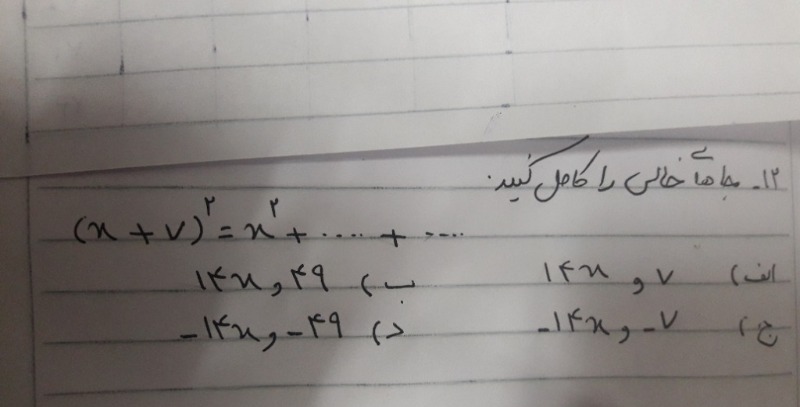 ۱۲- جاهای خالی را کامل کنید.
(x + ۷)^۲ = x^۲ + ..... + .....
الف) ۱۴x و ۷ ب) ۱۴x و ۴۹
ج) -۱۴x و -۷ د) -۱۴x و -۴۹